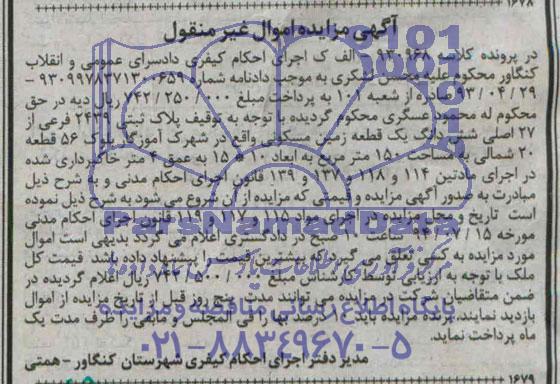 ۱۶۷۸
آگهی مزایده اموال غیر منقول
در پرونده کلاسه ۹۳۰۹۶۸ الف ک اجرای احکام کیفری دادسرای عمومی و انقلاب
کنگاور محکوم علیه محسن عسگری به موجب دادنامه شماره ۹۳۰۹۹۷۸۳۷۱۳۰۰۶۵۹ -
۹۳/۰۴/۲۹ صادره از شعبه ۱۰۸ به پرداخت مبلغ ۷۴۲/۲۵۰/۰۰۰ ریال دیه در حق
محکوم له محمود عسگری محکوم گردیده با توجه به توقیف پلاک ثبتی ۲۴۳۹ فرعی از
۲۷ اصلی شش دانگ یک قطعه زمین مسکونی واقع در شهرک آموزگار بلوک ۵۶ قطعه
۲۰ شمالی به مساحت ۱۵۰ متر مربع به ابعاد ۱۰ * ۱۵ به عمق ۴ متر خاکبرداری شده
در اجرای مادتین ۱۱۴ و ۱۱۸ و ۱۳۷ و ۱۳۹ قانون اجرای احکام مدنی و به شرح ذیل
مبادرت به صدور آگهی مزایده و قیمتی که مزایده از آن شروع می شود به شرح ذیل نموده
است تاریخ و محل مزایده در اجرای مواد ۱۱۵ و ۱۱۷ و ۱۱۹ قانون اجرای احکام مدنی
مورخه ۹۴/۰۷/۱۵ ساعت ۱۰ صبح در دادگستری اعلام می گردد بدیهی است اموال
مورد مزایده به کسی تعلق می گیرد که بیشترین قیمت را پیشنهاد داده باشد قیمت کل
ملک با توجه به ارزیابی توسط کارشناس مبلغ ۷۴۲/۵۰۰/۰۰۰ ریال اعلام گردیده در
ضمن متقاضیان شرکت در مزایده می توانند مدت پنج روز قبل از تاریخ مزایده از اموال
بازدید نمایند. برنده مزایده باید ۱۰ درصد بها را فی المجلس و مابقی را ظرف مدت یک
ماه پرداخت نماید.
مدیر دفتر اجرای احکام کیفری شهرستان کنگاور - همتی
۱۶۷۹
ParsNamadData
پایگاه اطلاع رسانی مناقصه و مزایده
۰۲۱-۸۸۳۴۹۶۷۰-۵